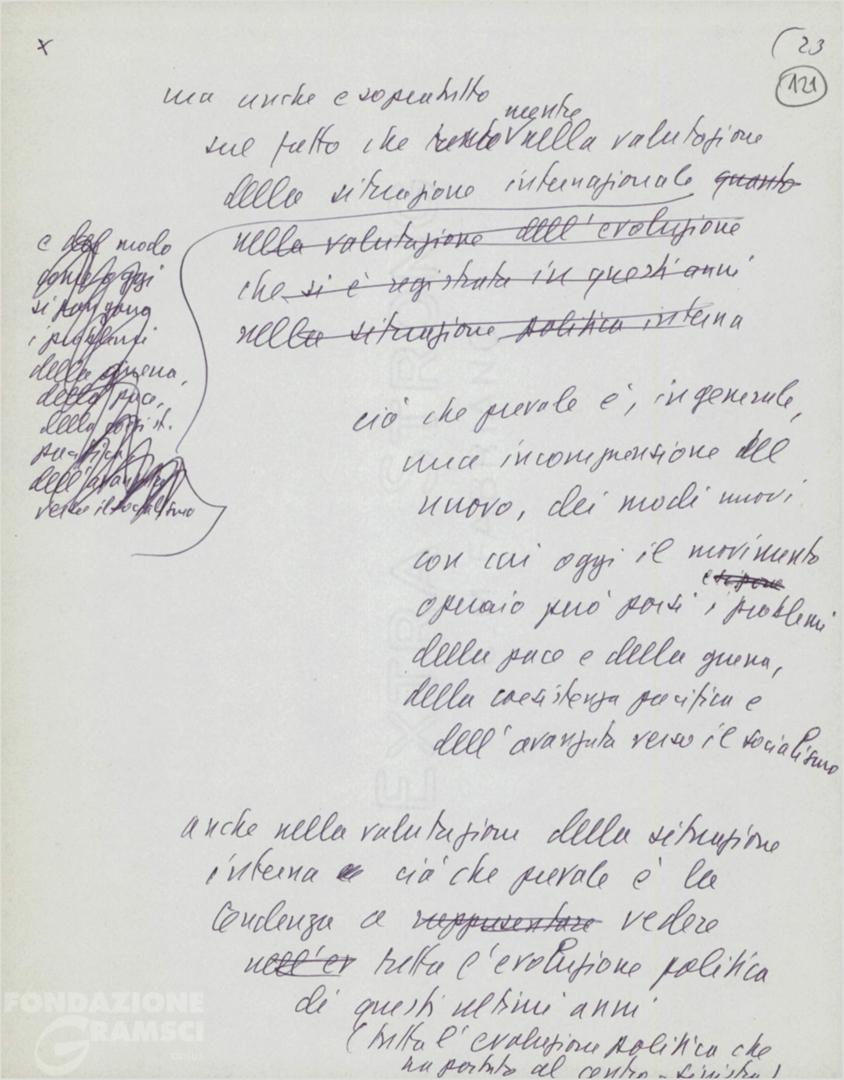 x
23
121
ma anche e sopratutto
mentre
sul fatto che tanto nella valutazione
della situazione internazionale quanto
nella valutazione dell'evoluzione
che si è registrata in questi anni
nella situazione politica interna
e del modo
come oggi
si pongono
i problemi
della guerra,
della pace,
della coesist.
pacifica,
dell'avanzata
verso il socialismo
ciò che prevale è, in generale,
una incomprensione del
nuovo, dei modi nuovi
con cui oggi il movimento
operaio può porsi i problemi
della pace e della guerra,
della coesistenza pacifica e
dell'avanzata verso il socialismo
anche nella valutazione della situazione
interna ciò che prevale è la
tendenza a rappresentare vedere
nell'ev tutta l'evoluzione politica
di questi ultimi anni
(tutta l'evoluzione politica che
ha portato al centro-sinistra)
EXTRA STRONG
FABRIANO
FONDAZIONE
GRAMSCI